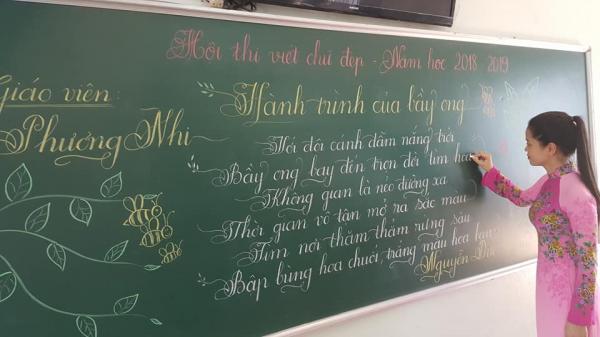 Hội thi viết chữ đẹp - Năm học 2018 2019
Giáo viên:
Phương Nhi
Hành trình của bầy ong
Với đôi cánh đẫm nắng trời
Bầy ong bay đến trọn đời tìm hoa
Không gian là nẻo đường xa
Thời gian vô tận mở ra sắc màu
Tìm nơi thăm thẳm rừng sâu
Bập bùng hoa chuối, trắng màu hoa ban
Nguyễn Đức